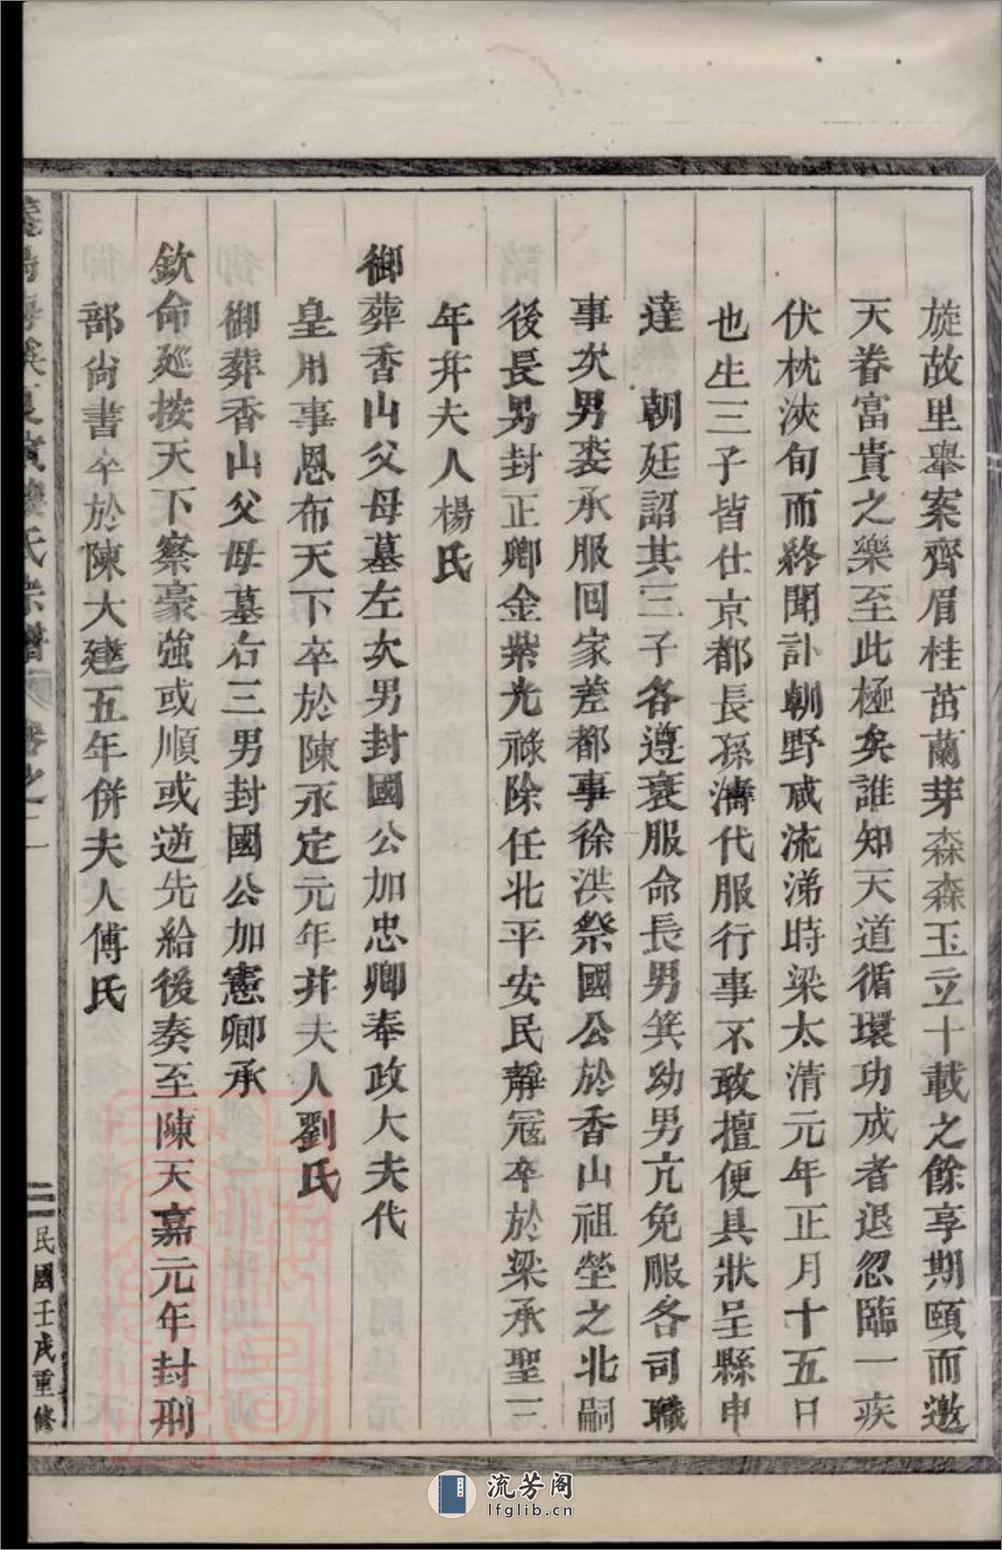 旋故里舉案齊眉桂茁蘭芽森森玉立十載之餘享期頤而邀
天眷富貴之樂至此極矣誰知天道循環功成者退忽臨一疾
伏枕浹旬而終聞訃朝野咸流涕時梁太清元年正月十五日
也生三子皆仕京都長孫濤代服行事不敢擅便具狀呈縣申
達 朝廷詔其三子各遵衰服命長男箕幼男亢免服各司職
事次男裘承服回家差都事徐洪祭國公於香山祖塋之北嗣
後長男封正卿金紫光祿除任北平安民靜冦卒於梁承聖三
年幷夫人楊氏
御葬香山父母墓左次男封國公加忠卿奉政大夫代
皇用事恩布天下卒於陳永定元年幷夫人劉氏
御葬香山父母墓右三男封國公加憲卿承
欽命廵按天下察豪強或順或逆先給後奏至陳天嘉元年封刑
部尚書卒於陳大建五年併夫人傅氏
氏宗譜 卷之一
二 民國壬戌重修
流芳阁
lfglib.cn